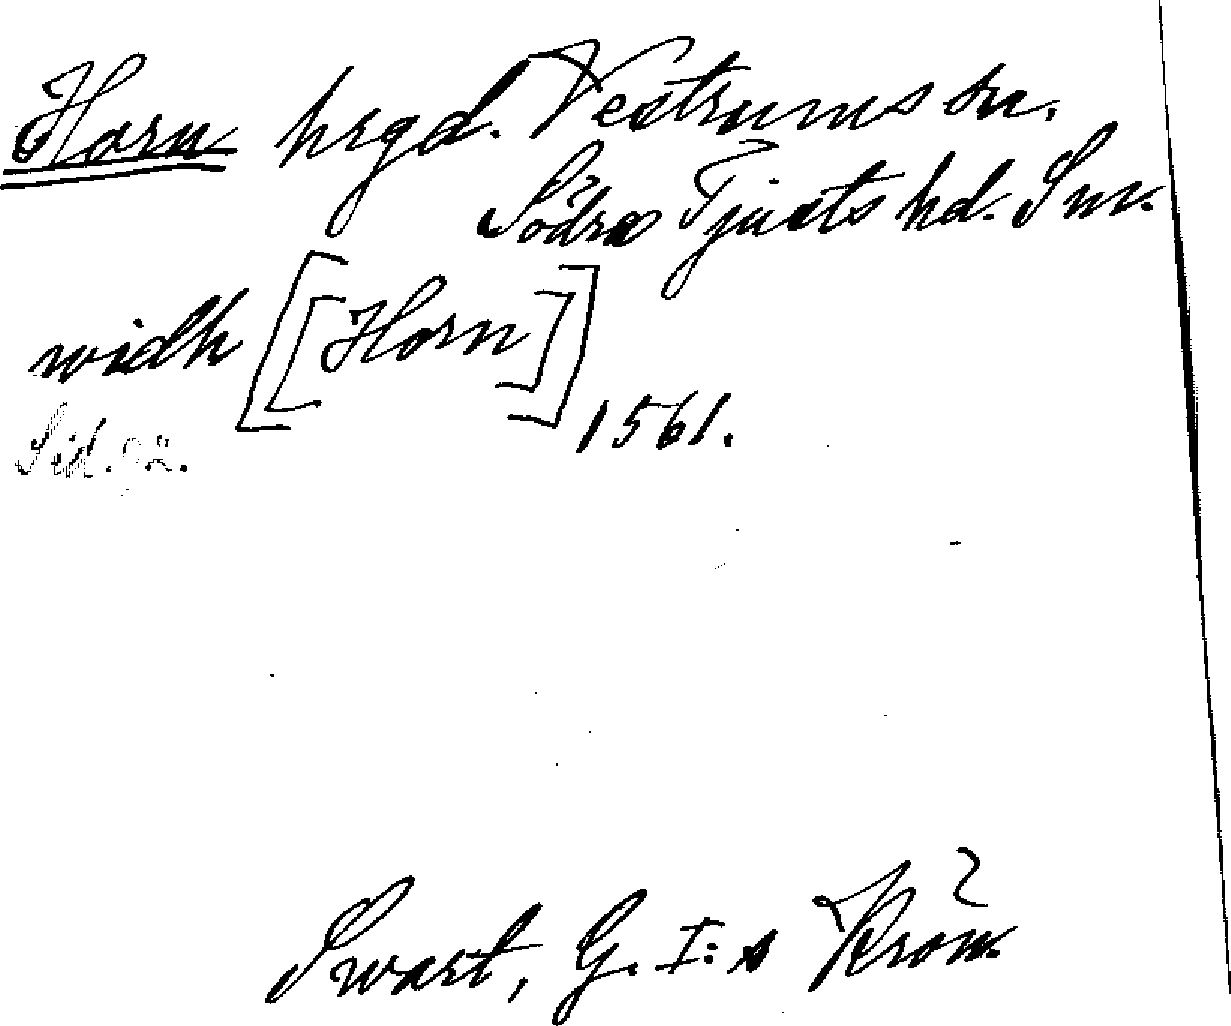 Horn hrgd. Vestrums sn.
Södra Tjusts hd. Sm.
widh [[Horn]]
1561.
Sid. 92.
Swart, G. I:s Krön. 2